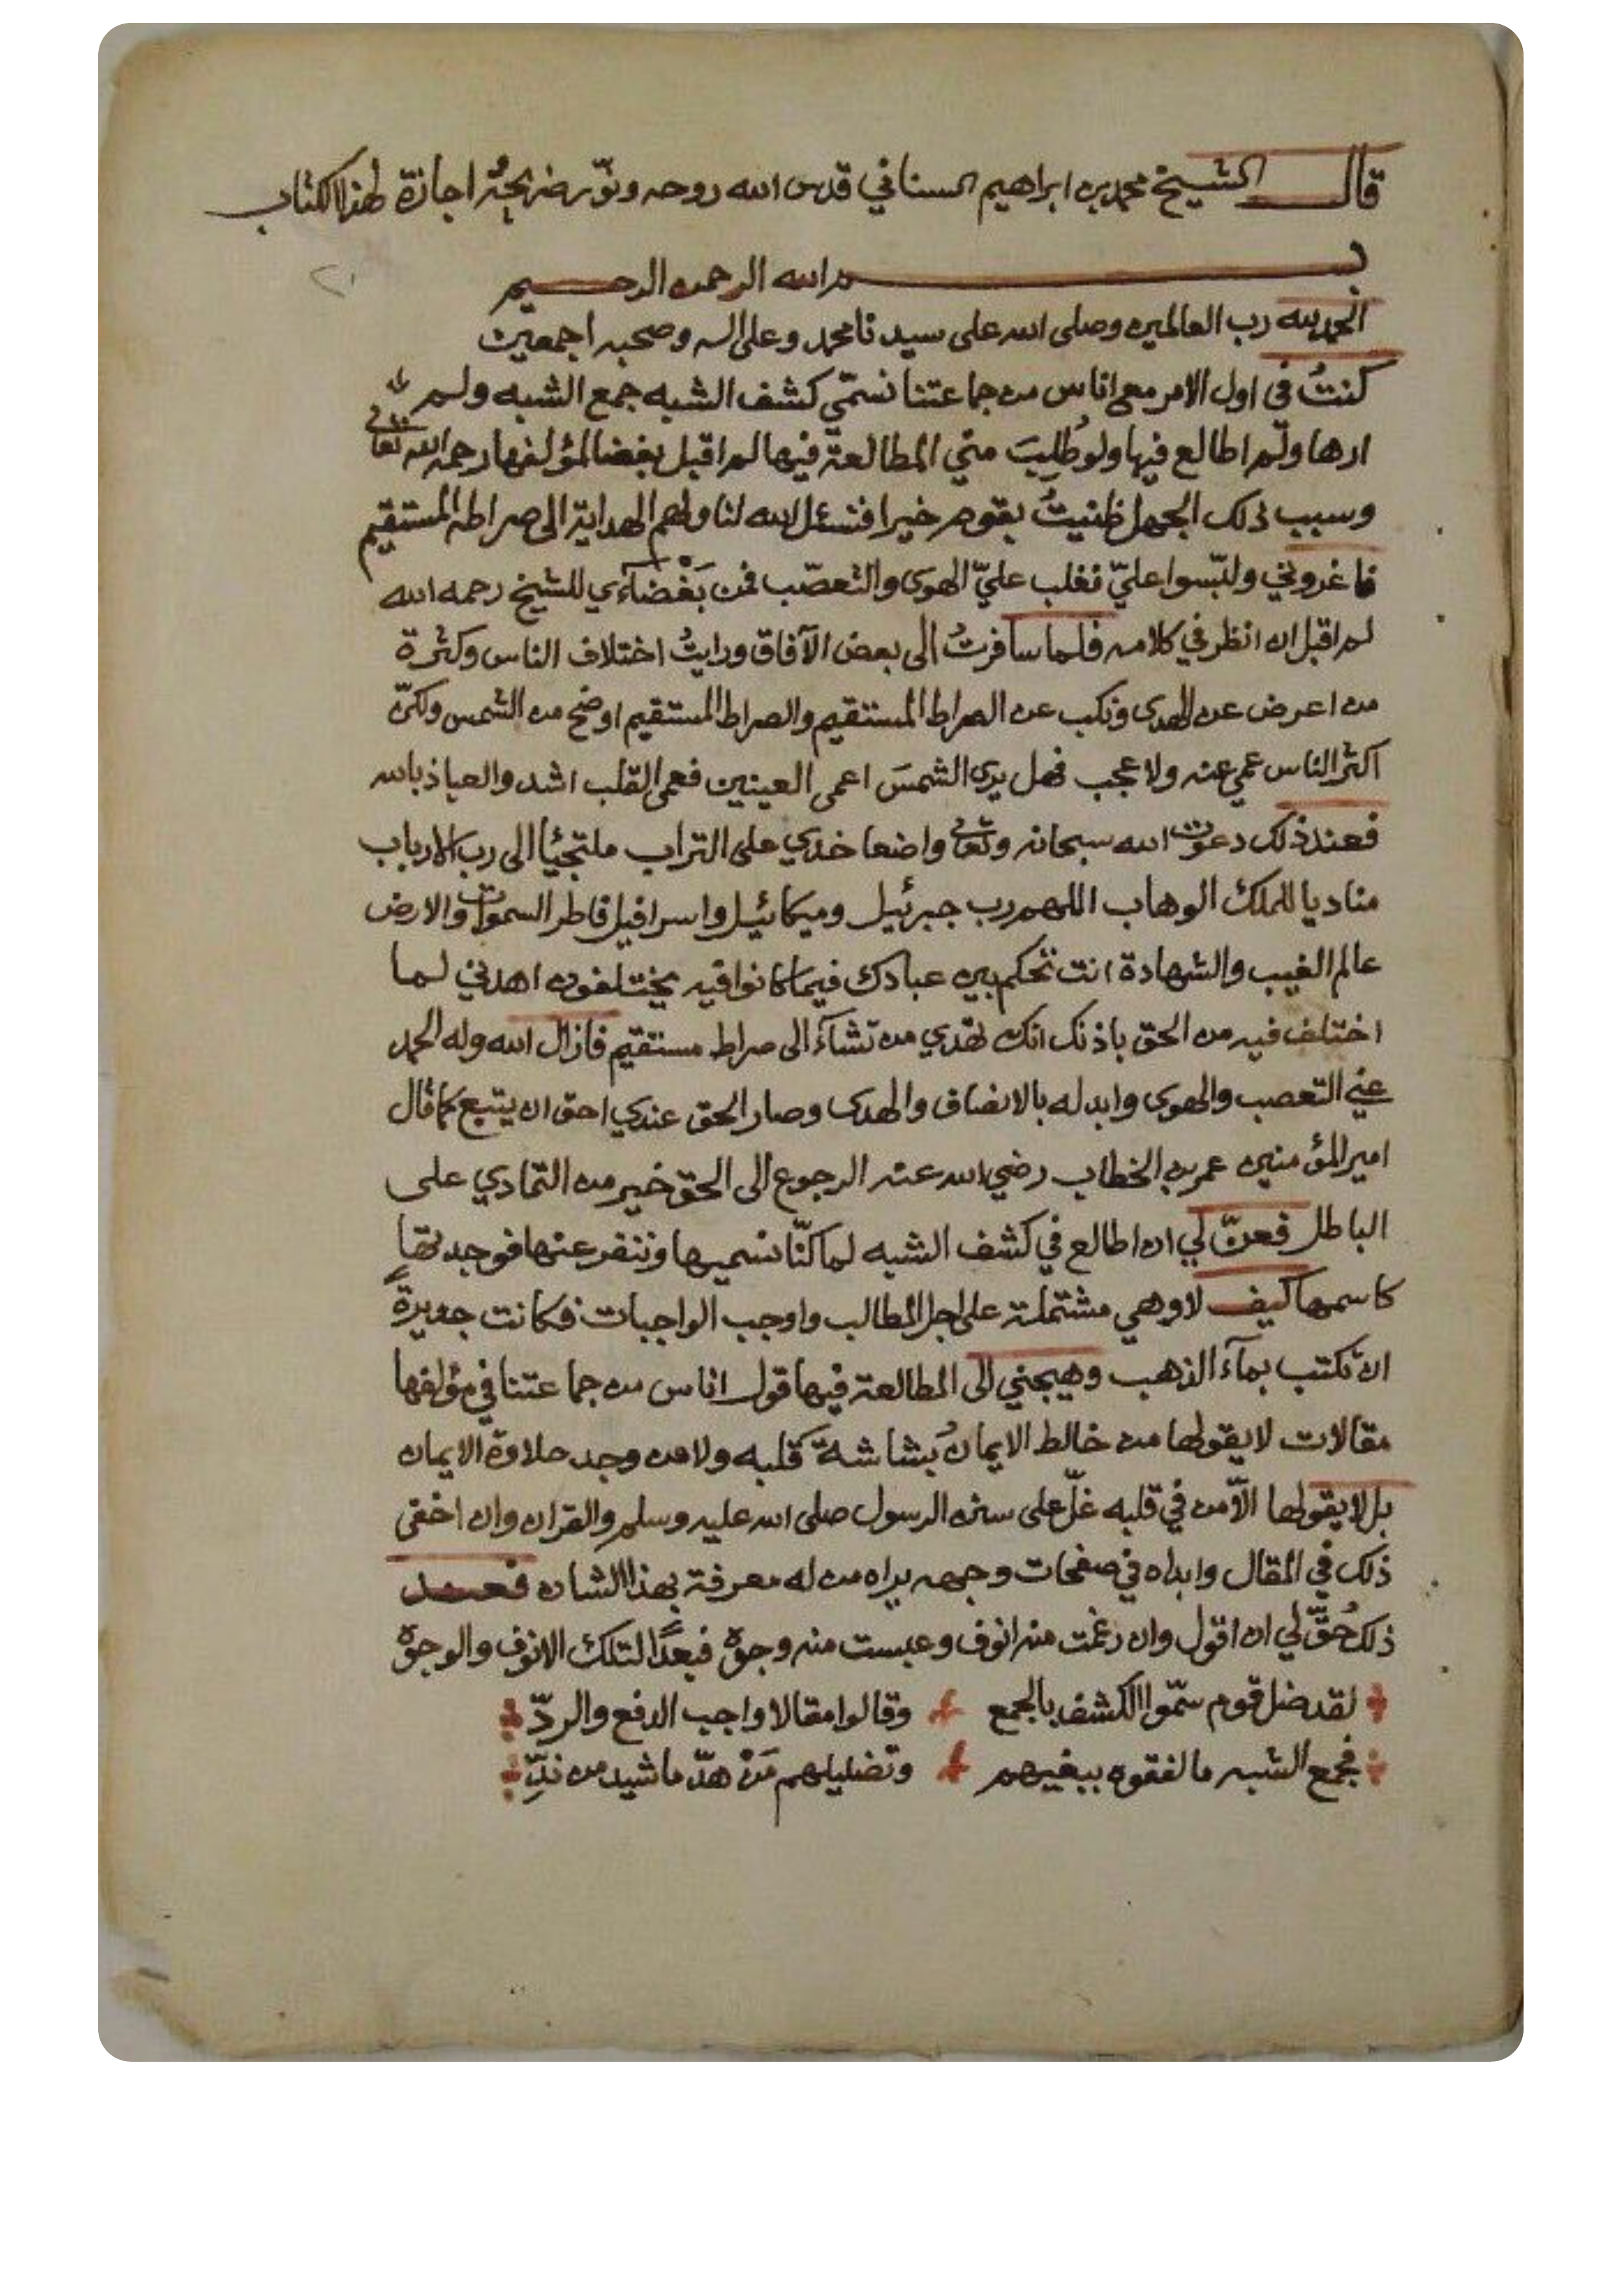 قال الشيخ محمد بن ابراهيم السناني قدس الله روحه ونوّر ضريحَهُ اجازة لهذا الكتاب
بسم الله الرحمن الرحيم
الحمد لله رب العالمين وصلى الله على سيدنا محمد وعلى اله وصحبه اجمعين
كنتُ في اول الامر مع اناس من جماعتنا نسمّي كشف الشبه جمع الشبه ولم
ارها ولم اطالع فيها ولو طُلِبَت منّي المطالعة فيها لم اقبل بغضا لمؤلفها رحمه الله تعالى
وسبب ذلك الجهل ظنيتُ بقوم خيرا فنسئل الله لنا ولهم الهداية الى صراطه المستقيم
فاغروني ولبّسوا عليّ فغلب عليّ الهوى والتعصّب فمن بَغْضَآءي للشيخ رحمه الله
لم اقبل ان انظر في كلامه فلما سافرتُ الى بعض الآفاق ورايتُ اختلاف الناس وكثرة
من اعرض عن الهدى ونكب عن الصراط المستقيم والصراط المستقيم اوضح من الشمس ولكنّ
اكثر الناس عمي عنه ولا عجب فهل يرى الشمسَ اعمى العينين فعمى القلب اشد والعياذ بالله
فعند ذلك دعوت الله سبحانه وتعالى واضعا خدي على التراب ملتجئًا الى رب الارباب
مناديا للملك الوهاب اللهم رب جبرئيل وميكائيل واسرافيل فاطر السموات والارض
عالم الغيب والشهادة انت تحكم بين عبادك فيما كانوا فيه يختلفون اهدني لما
اختلف فيه من الحق باذنك انك تهدي من تشآء الى صراط مستقيم فازال الله وله الحمد
عني التعصب والهوى وابدله بالانصاف والهدى وصار الحق عندي احق ان يتبع كما قال
امير المؤمنين عمر بن الخطاب رضي الله عنه الرجوع الى الحق خير من التمادي على
الباطل فعنّ لي ان اطالع في كشف الشبه لما كنّا نسميها وننفر عنها فوجدتها
كاسمها كيف لا وهي مشتملة على اجل المطالب واوجب الواجبات فكانت جديرةً
ان تكتب بمآء الذهب وهيجني الى المطالعة فيها قول اناس من جماعتنا في مؤلفها
مقالات لا يقولها من خالط الايمانُ بشاشةَ قلبه ولا من وجد حلاوة الايمان
بل لا يقولها الّا من في قلبه غلّ على سنة الرسول صلى الله عليه وسلم والقران وان اخفى
ذلك في المقال وابداه في صفحات وجهه يراه من له معرفة بهذا الشان فعند
ذلك حُقَّ لي ان اقول وان رغمت منه انوف وعبست منه وجوه فبعدًا لتلك الانوف والوجوه
لقد ضل قوم سمّوا الكشف بالجمع وقالوا مقالا واجب الدفع والردّ
فجمع الشبه ما لفقوه ببغيهم وتضليلهم مَنْ هدّ ما شيد من ندِّ